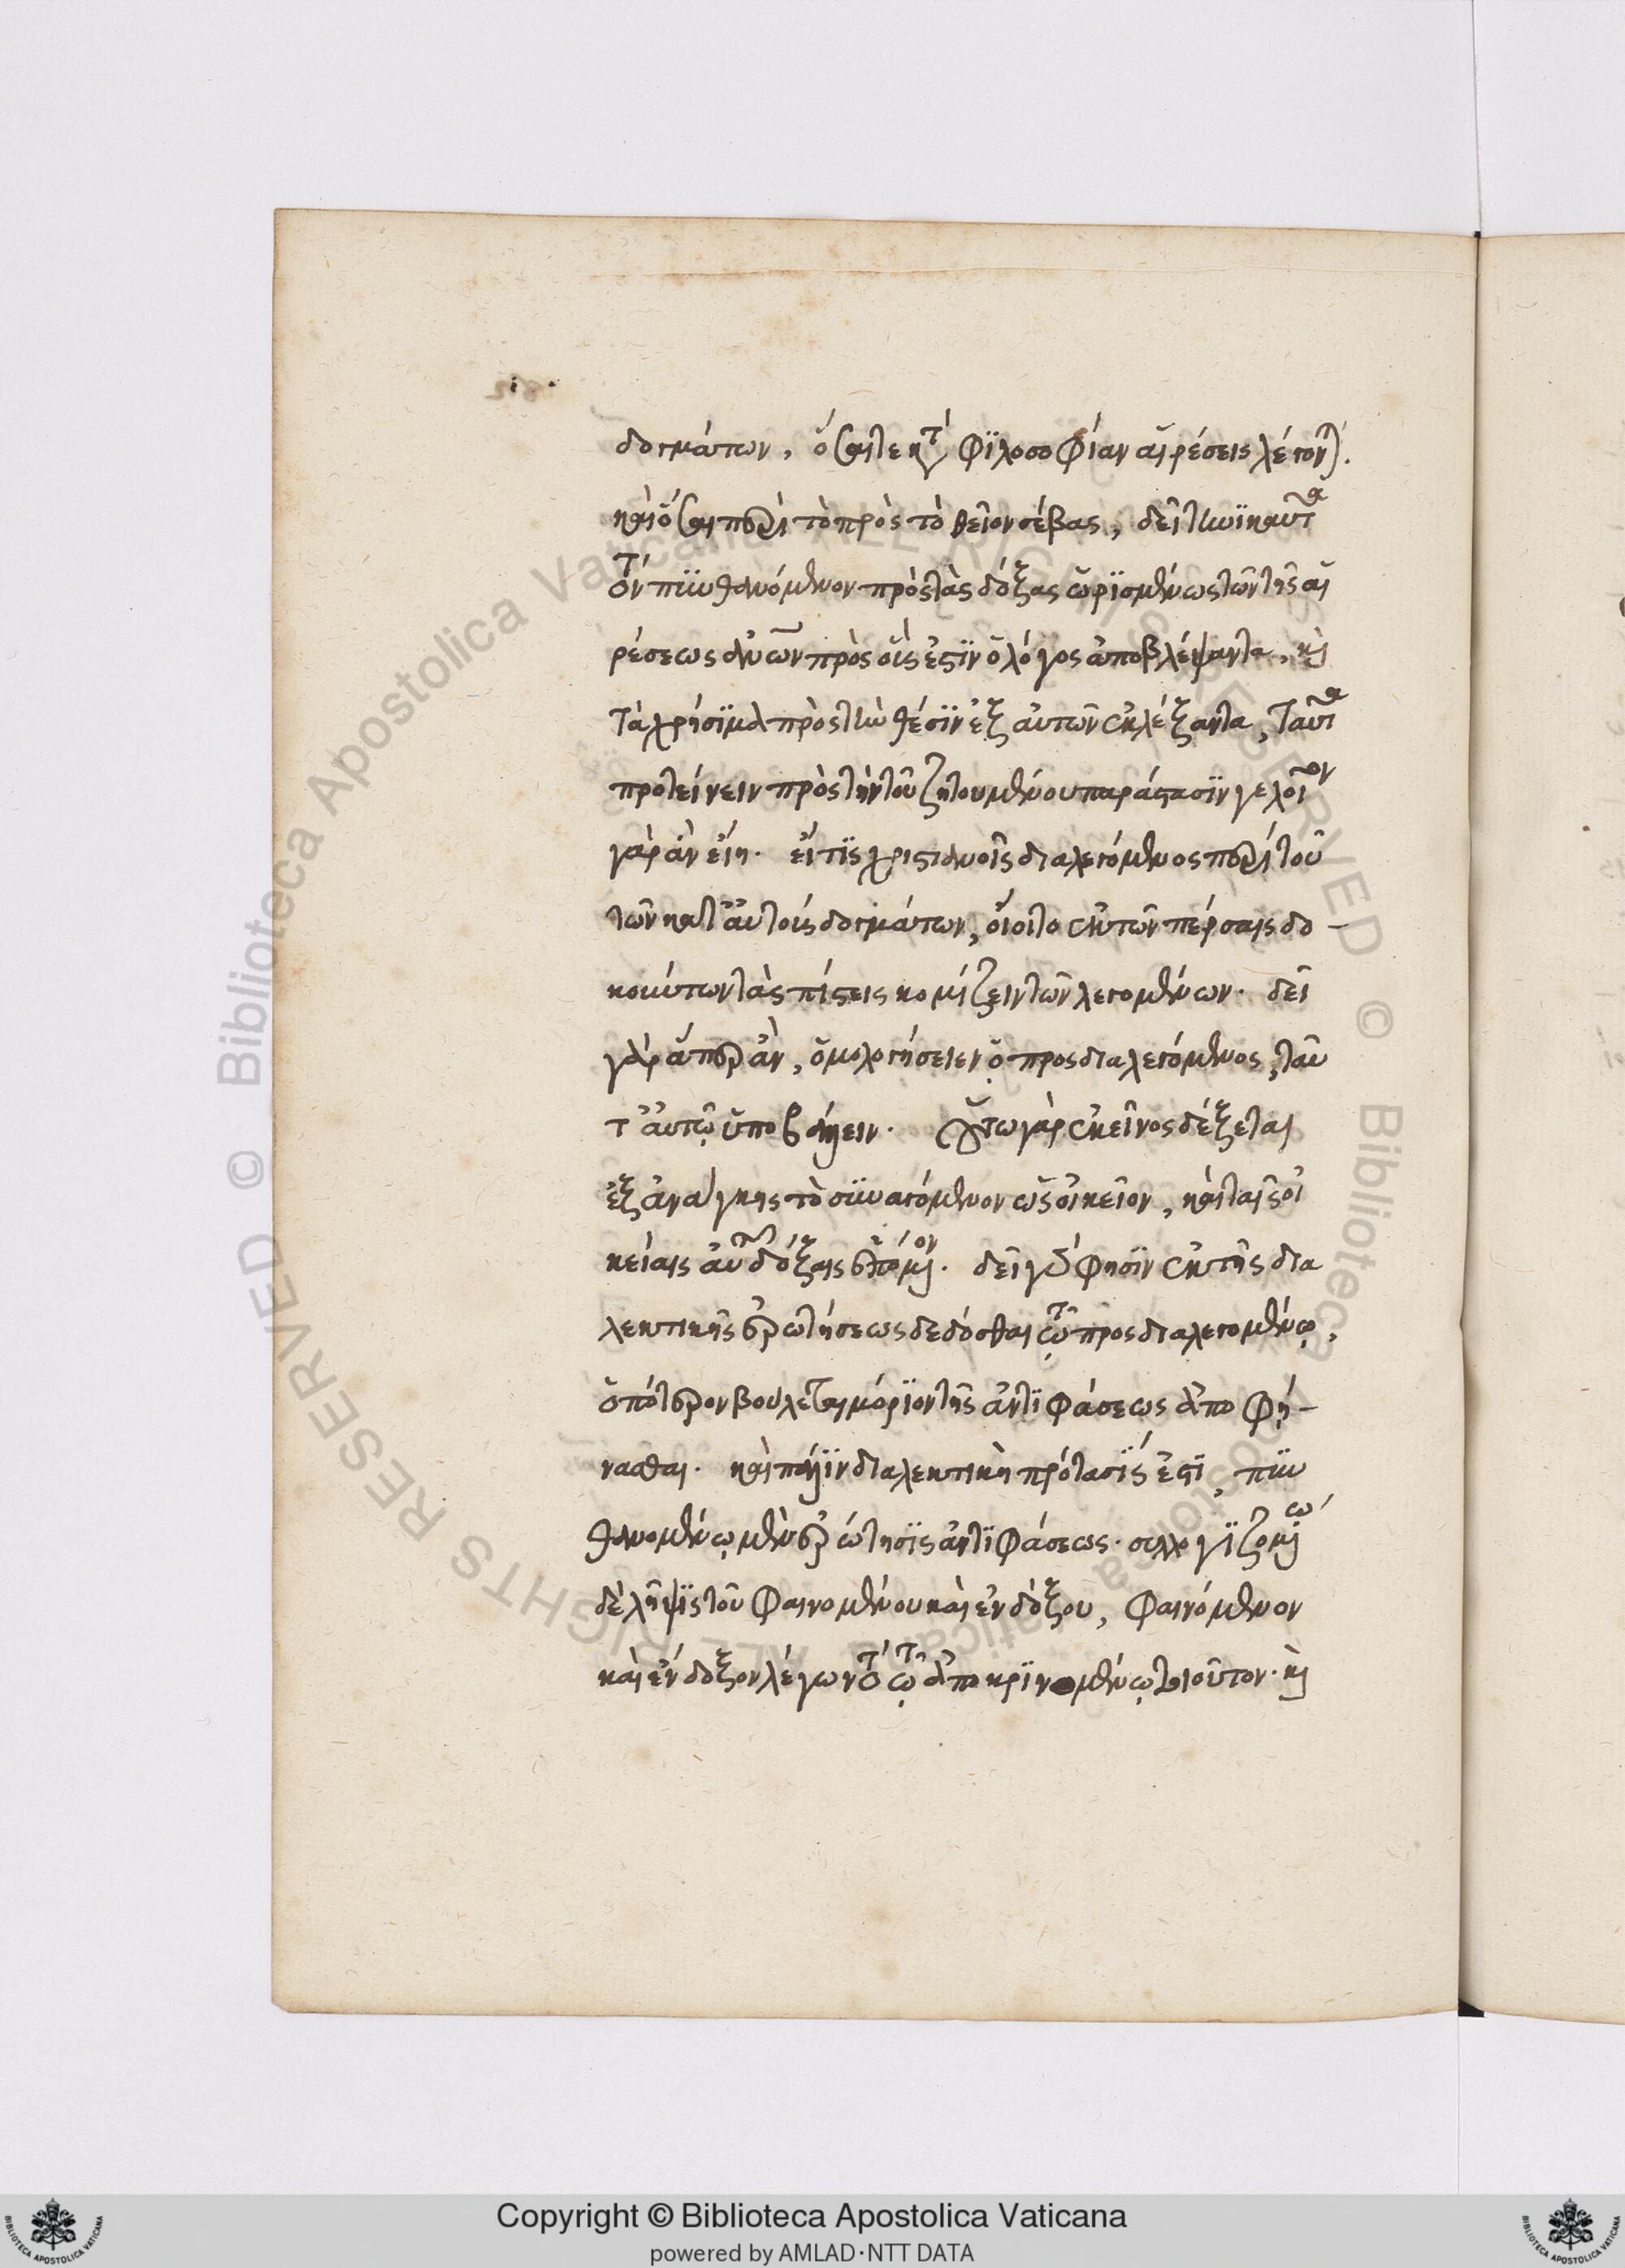 δογμάτων, ὅσαι τε κατὰ φϊλοσοφίαν αἱρέσεις λέγονται.
καὶ ὅσαι περὶ τὸ πρὸς τὸ θεῖον σέβας, δεῖ τηνϊκαῦτα
τὸν πϋνθανόμενον πρὸς τὰς δόξας ὡρϊσμένως τῶν τῆς αἱ
ρέσεως ἐκείνων πρὸς οἷς ἐστϊν ὁ λόγος ἀποβλέψαντα, καὶ
τὰ χρήσϊμα πρὸς τὴν θέσϊν ἐξ αὐτῶν ἐκλέξαντα, ταῦτα
προτείνειν πρὸς τὴν τοῦ ζητουμένου παράστασϊν γελοῖον
γὰρ ἂν εἴη. εἴ τϊς χριστιανοῖς διαλεγόμενος περὶ του
τῶν κατ' αὐτοὺς δογμάτων, οἴοιτο ἐκ τῶν πέρσαις δο-
κούντων τὰς πίστεις κομίζειν τῶν λεγομένων. δεῖ
γὰρ ἅπερ ἂν, ὁμολογήσειεν ὁ προσδιαλεγόμενος, ταῦ
τ' αὐτῷ ὑποβάλλειν. οὕτω γὰρ ἐκεῖνος δέξεται
ἐξ ἀνάγκης τὸ σϋναγόμενον ὡς οἰκεῖον, καὶ ταῖς οἰ
κείαις αὐτοῦ δόξαις ἑπόμενον. δεῖ γάρ φησϊν ἐκ τῆς δια
λεκτικῆς ἐρωτήσεως δεδόσθαι τῷ προσδιαλεγομένῳ,
ὁπότερον βούλεται μόρϊον τῆς ἀντϊφάσεως ἀποφή-
νασθαι. καὶ πάλϊν διαλεκτικὴ πρότασϊς ἐστϊ, πϋν
θανομένῳ μὲν ἐρώτησϊς ἀντϊφάσεως. συλλογϊζομένῳ
δὲ λῆψϊς τοῦ φαινομένου καὶ ἐνδόξου, φαινόμενον
καὶ ἔνδοξον λέγων τὸ τῷ ἀποκρϊνομένῳ τοιοῦτον. καὶ
Copyright © Biblioteca Apostolica Vaticana
powered by AMLAD·NTT DATA